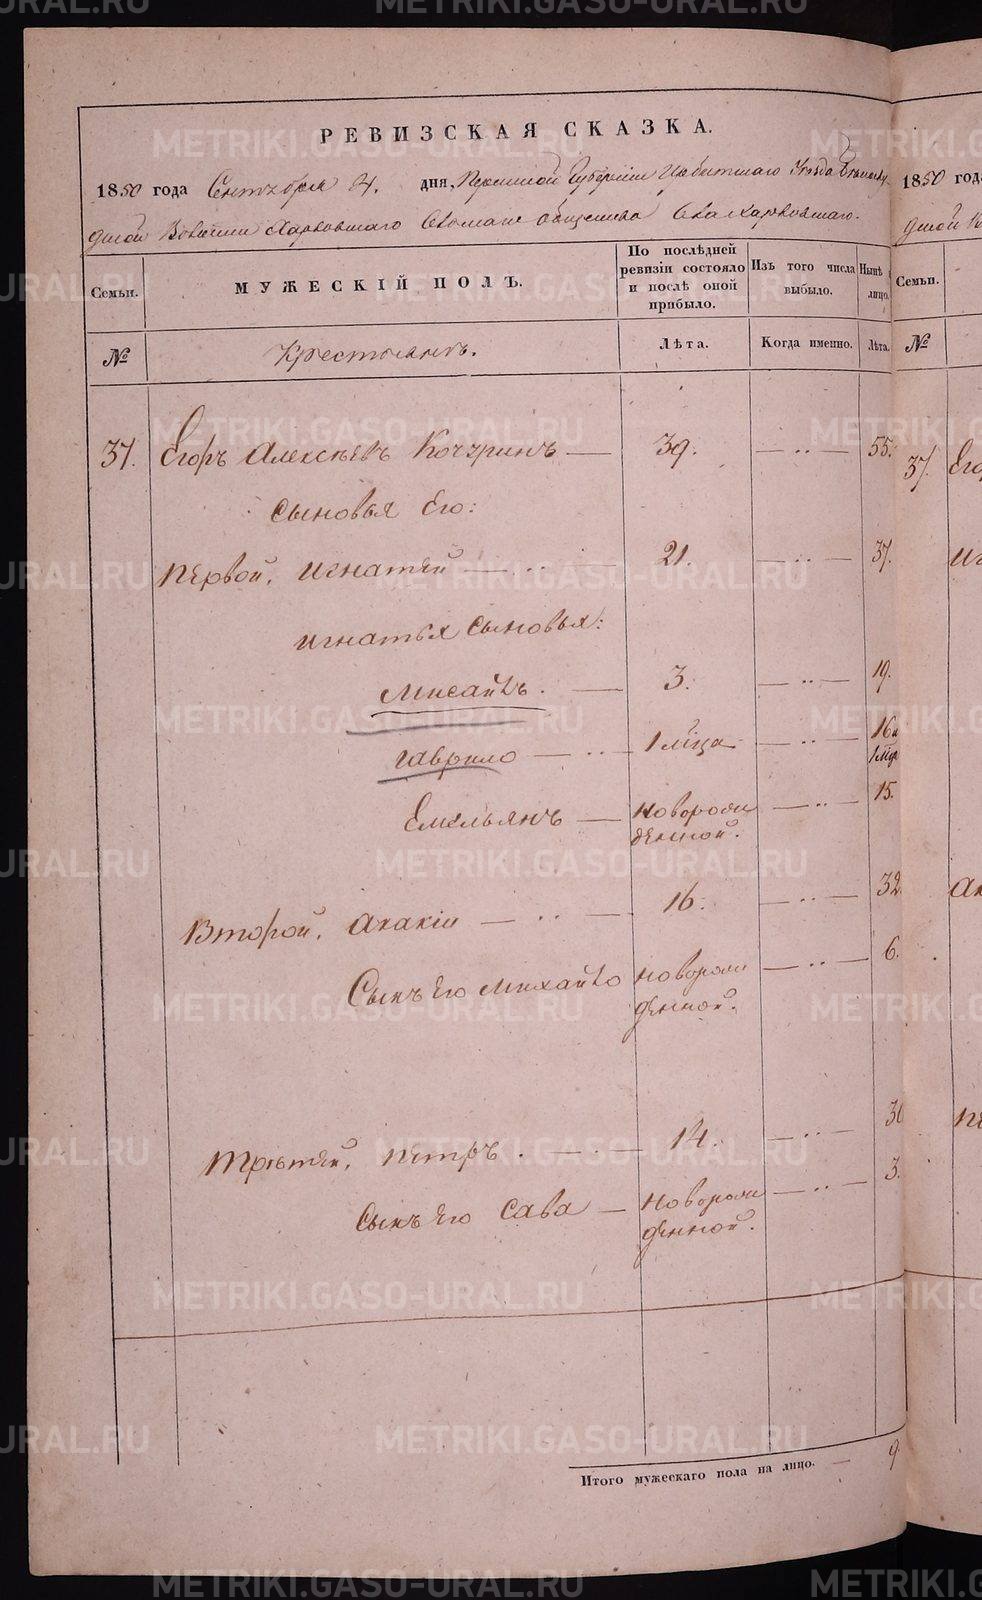 РЕВИЗСКАЯ СКАЗКА.
1850 года Сентября 4. дня, Пермской Губерніи Ирбитского Уѣзда
Волости Харловского Селскаго общества Села Харловского.
Семьи.
МУЖЕСКІЙ ПОЛЪ.
По послѣдней ревизіи состояло и послѣ оной прибыло.
Изъ того числа выбыло.
Нынѣ лицо.
№
Крестьянъ.
Лѣта.
Когда именно.
Лѣта.
37. Егоръ Алексѣевъ Кочуринъ — 39. — ·· — 55.
Сыновья Его:
Первой, Игнатей — ·· — 21. — ·· — 37.
Игнатья Сыновья:
Мисаилъ. — 3. — ·· — 19.
Гаврило — ·· — 1 мца — ·· — 16 и
1 мца
Емельянъ — новорож — ·· — 15.
денной.
Второй, Акакіи — ·· — 16. — ·· — 32.
Сынъ Его Михайло новорож — ·· — 6.
денной.
Третей, Петръ. — · — 14. — ·· — 30
Сынъ Его Сава — новорож — ·· — 3.
денной.
Итого мужескаго пола на лицо. — 9
1850 года
Семьи.
№
37. Его
METRIKI.GASO-URAL.RU